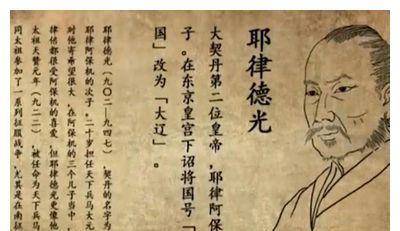 耶律德光
大契丹第二位皇帝,耶律阿保
子。在东京皇宫下诏将国号「
国」改为「大辽」。
耶律德光(九〇二-九四七),契丹的名字为
耶律阿保机的次子,二十岁担任天下兵马大元
对他寄希望很大,在阿保机的三个儿子当中,
律倍都很受阿保机的喜爱,但耶律德光更像他
太祖天赞元年(九二二),被任命为天下兵马
同太祖参加了一系列征服战争,尤其是在南征